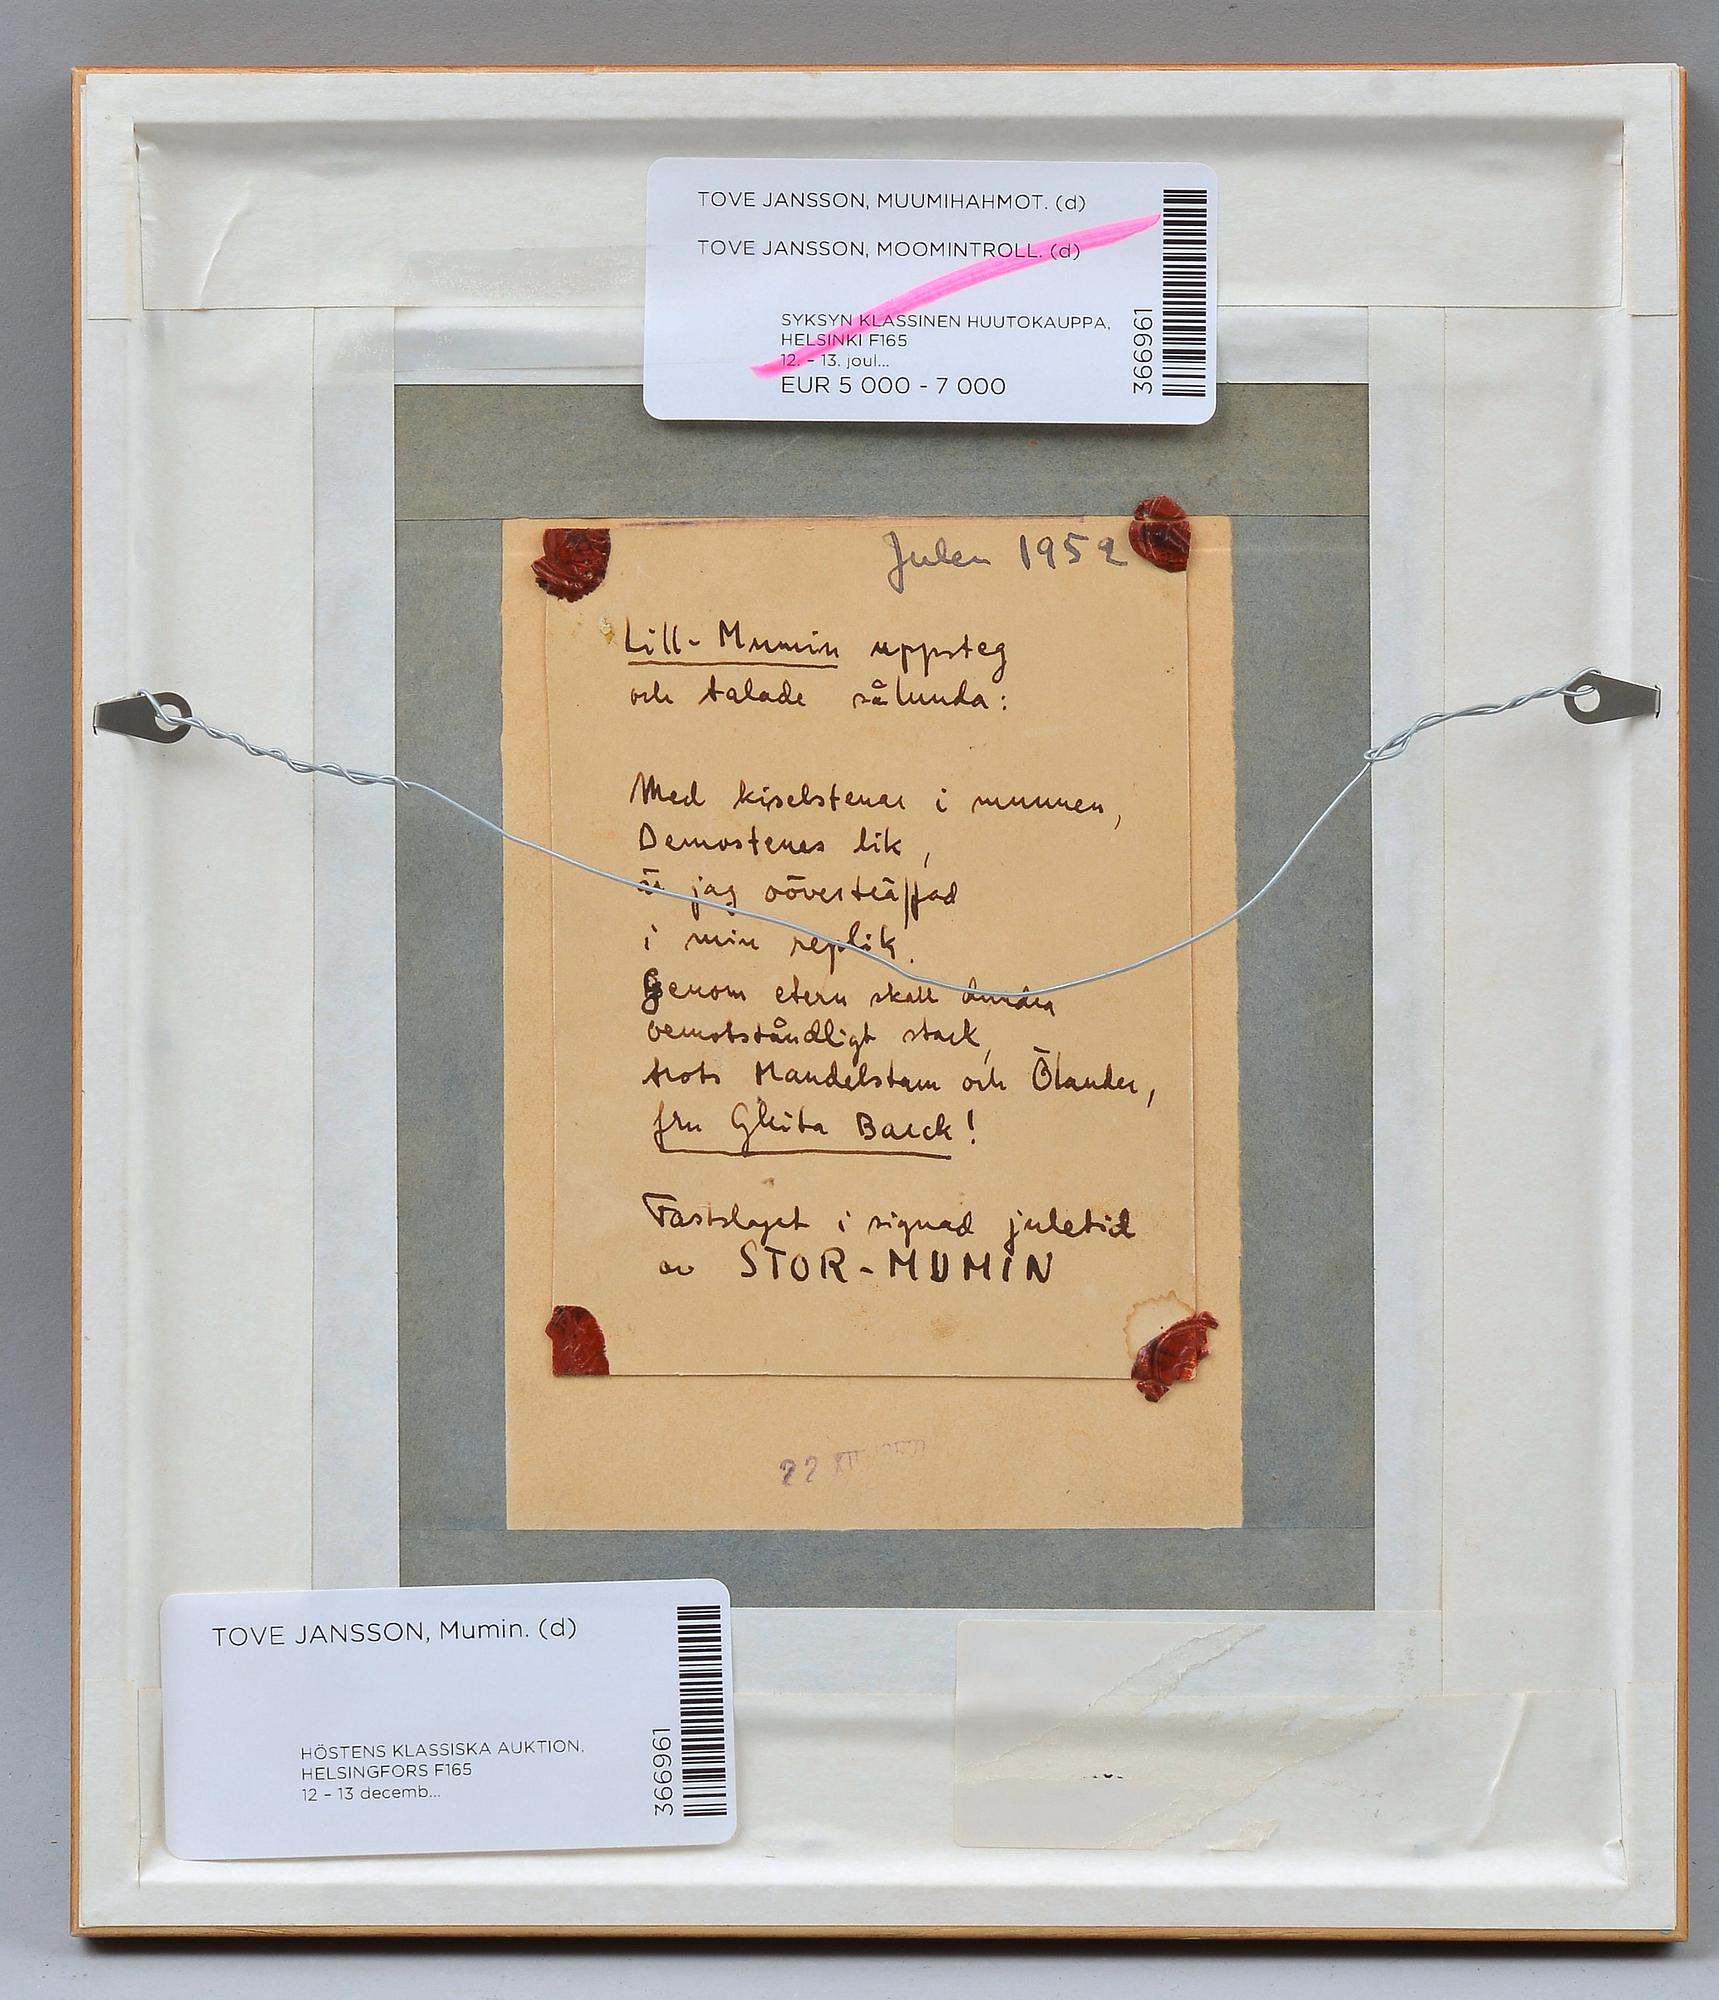 TOVE JANSSON, MUUMIHAHMOT. (d)
TOVE JANSSON, MOOMINTROLL. (d)
SYKSYN KLASSINEN HUUTOKAUPPA,
HELSINKI F165
12. – 13. joul...
EUR 5 000 - 7 000
366961
Julen 1952
Lill-Mumin uppsteg
och talade sålunda:
Med kiselstenar i munnen,
Demostenes lik,
är jag oöverträffad
i min replik.
Genom etern skall dundra
oemotståndligt stark,
trots Mandelstam och Ölander,
fru Ghita Barck!
Fastslaget i signad juletid
av STOR-MUMIN
22 XII
TOVE JANSSON, Mumin. (d)
HÖSTENS KLASSISKA AUKTION,
HELSINGFORS F165
12 – 13 decemb...
366961